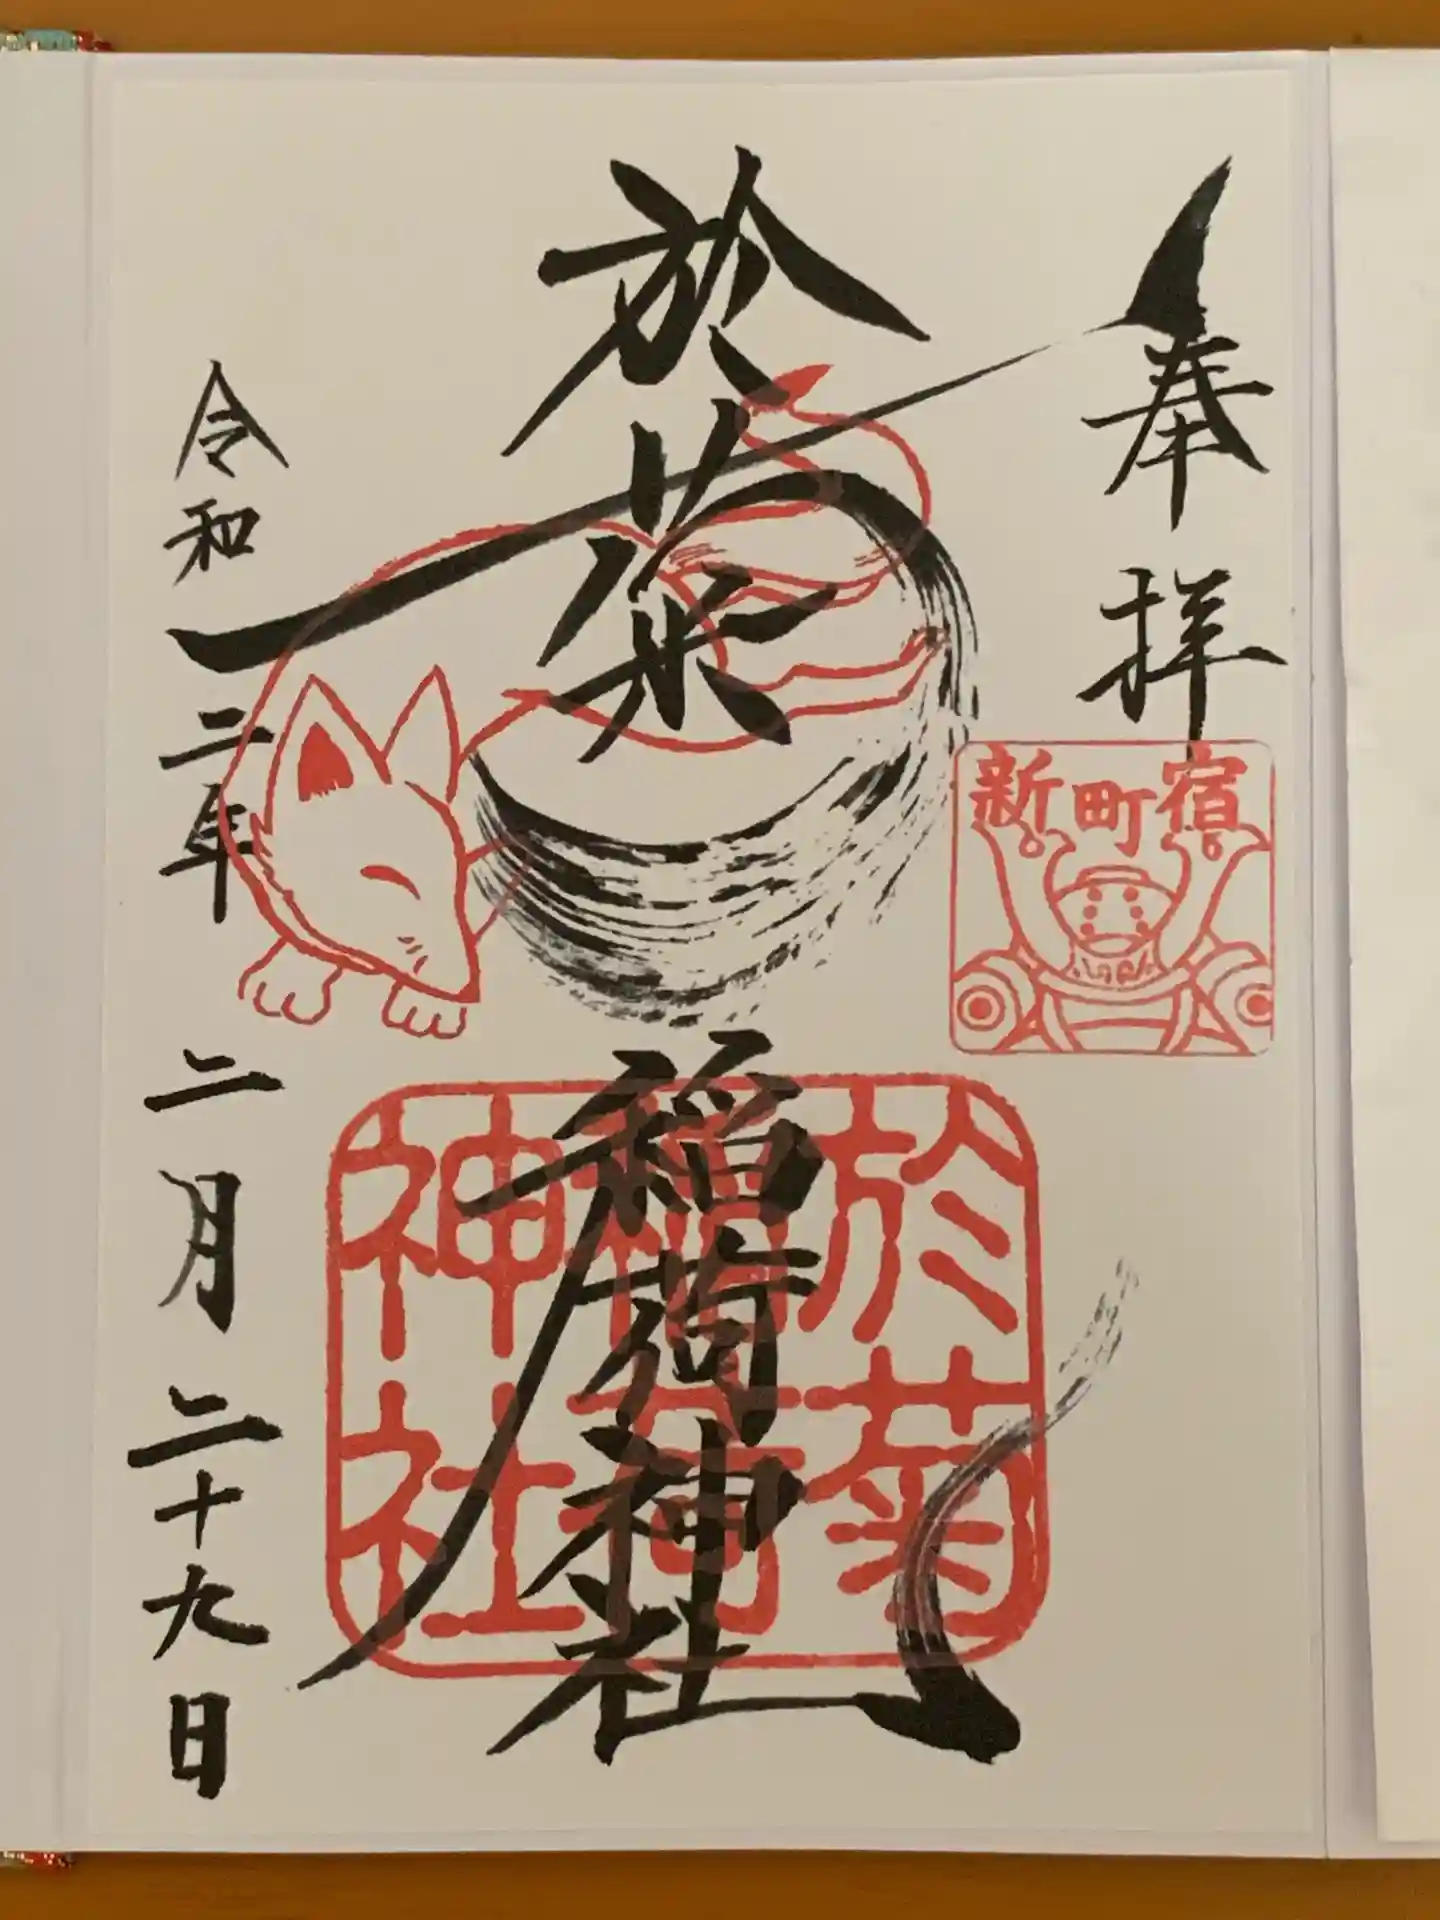 奉拝
新町宿
於菊稲荷神社
於菊
稲荷
神社
令和二年二月二十九日